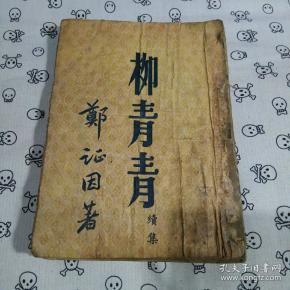 柳青青
續集
鄭証因著
孔夫子旧书网